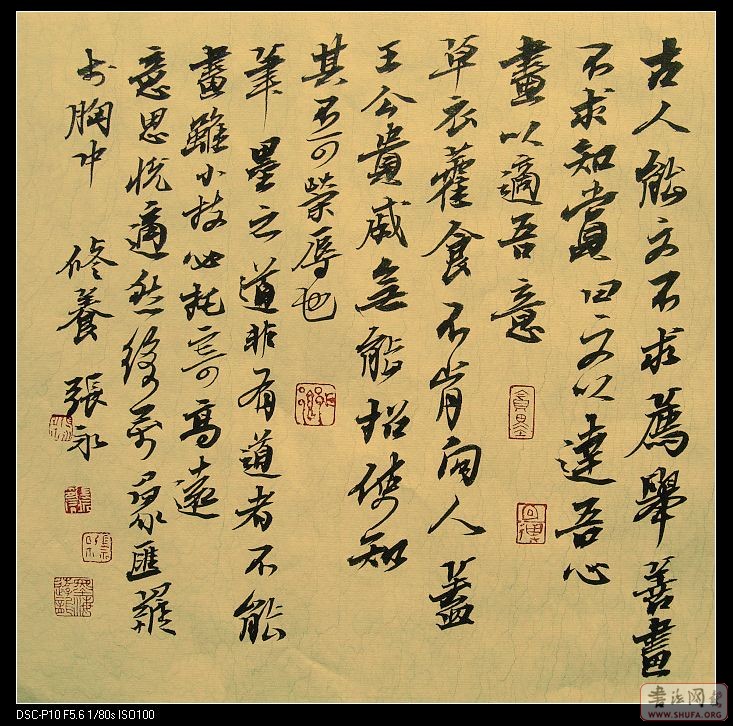 古人能文不求薦舉善畫
不求知賞曰文以達吾心
畫以適吾意
草衣藿食不肯向人蓋
王公貴戚無能招使知
其不可榮辱也
筆墨之道非有道者不能
畫雖小技必托寄高遠
意思悅適然後萬象匯羅
於胸中 修養 張永
DSC-P10 F5.6 1/80s ISO100
WWW.SHUFA.ORG